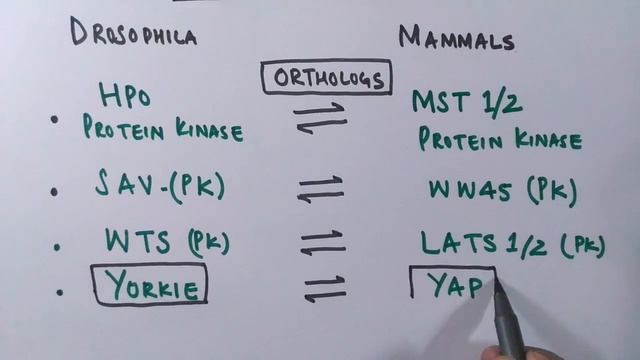 DROSOPHILA MAMMALS
ORTHOLOGS
HPO MST 1/2
PROTEIN KINASE PROTEIN KINASE
SAV-(PK) WW45 (PK)
WTS (PK) LATS 1/2 (PK)
YORKIE YAP